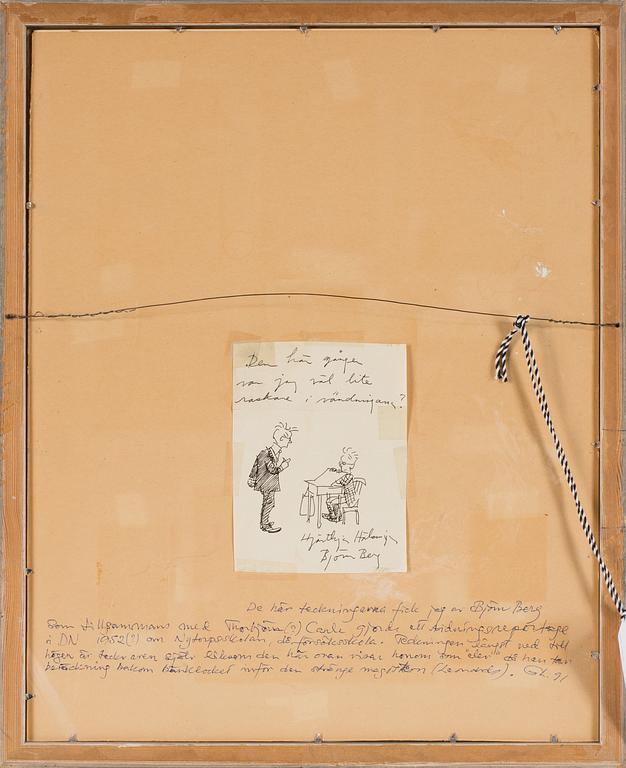 Den här gången
var jag väl lite
raskare i vändningarna?
Hjärtliga Hälsningar
Björn Berg
De här teckningarna fick jag av Björn Berg
som tillsammans med Thorbjörn(?) Carle gjorde ett tidningsreportage
i DN 1952(?) om Nytorpsskolan, då försöksskola. Teckningen längst ned till
höger är tecknaren själv liksom den här ovan visar honom som "elev" då han tar
betäckning bakom bänklocket inför den stränge magistern (Leonardo).